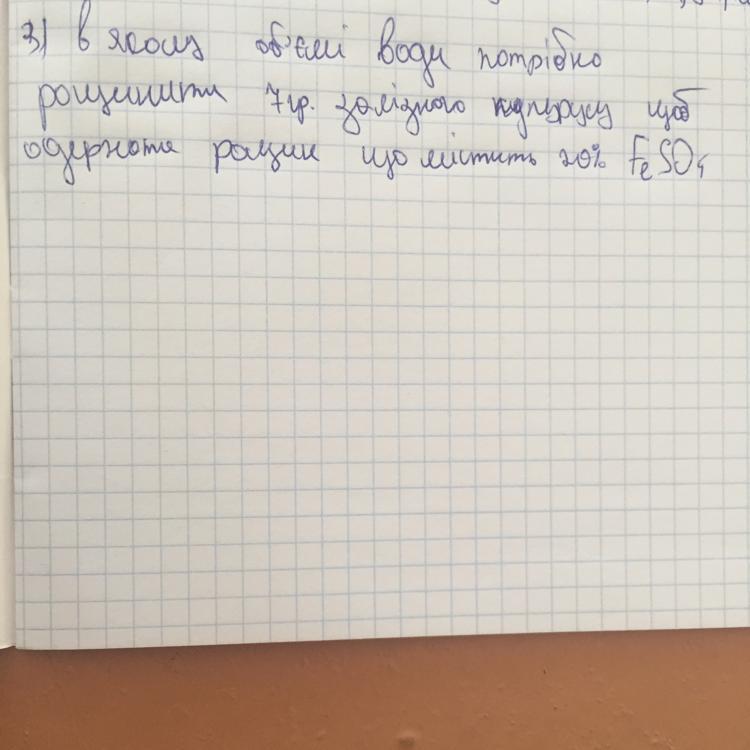 3) В якому об'ємі води потрібно
рощинити 7гр. залізного купурусу щоб
одержати рощин що містить 20% FeSO4